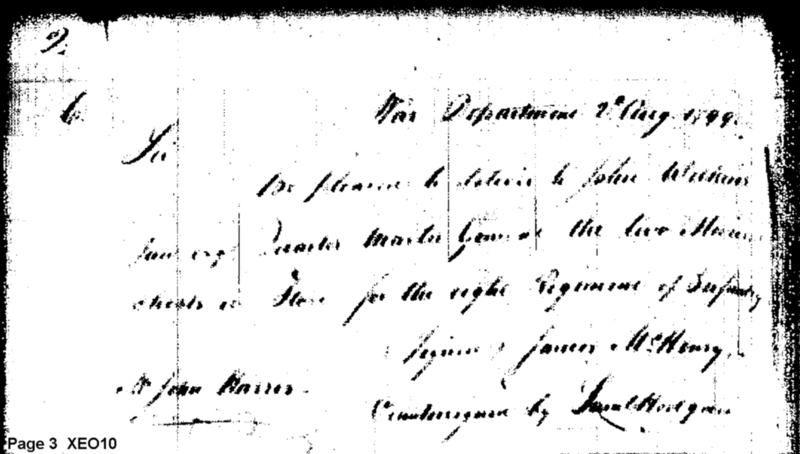 2.
6
War Department 2d Aug 1799.
Sir
Be pleased to deliver to John Wilkins
Junr esqr Quarter Master General the two
chests in Store for the eight Regiment of Infantry
signed James McHenry.
Mr John Harris
Countersigned by Saml Hodgdon
Page 3 XEO10